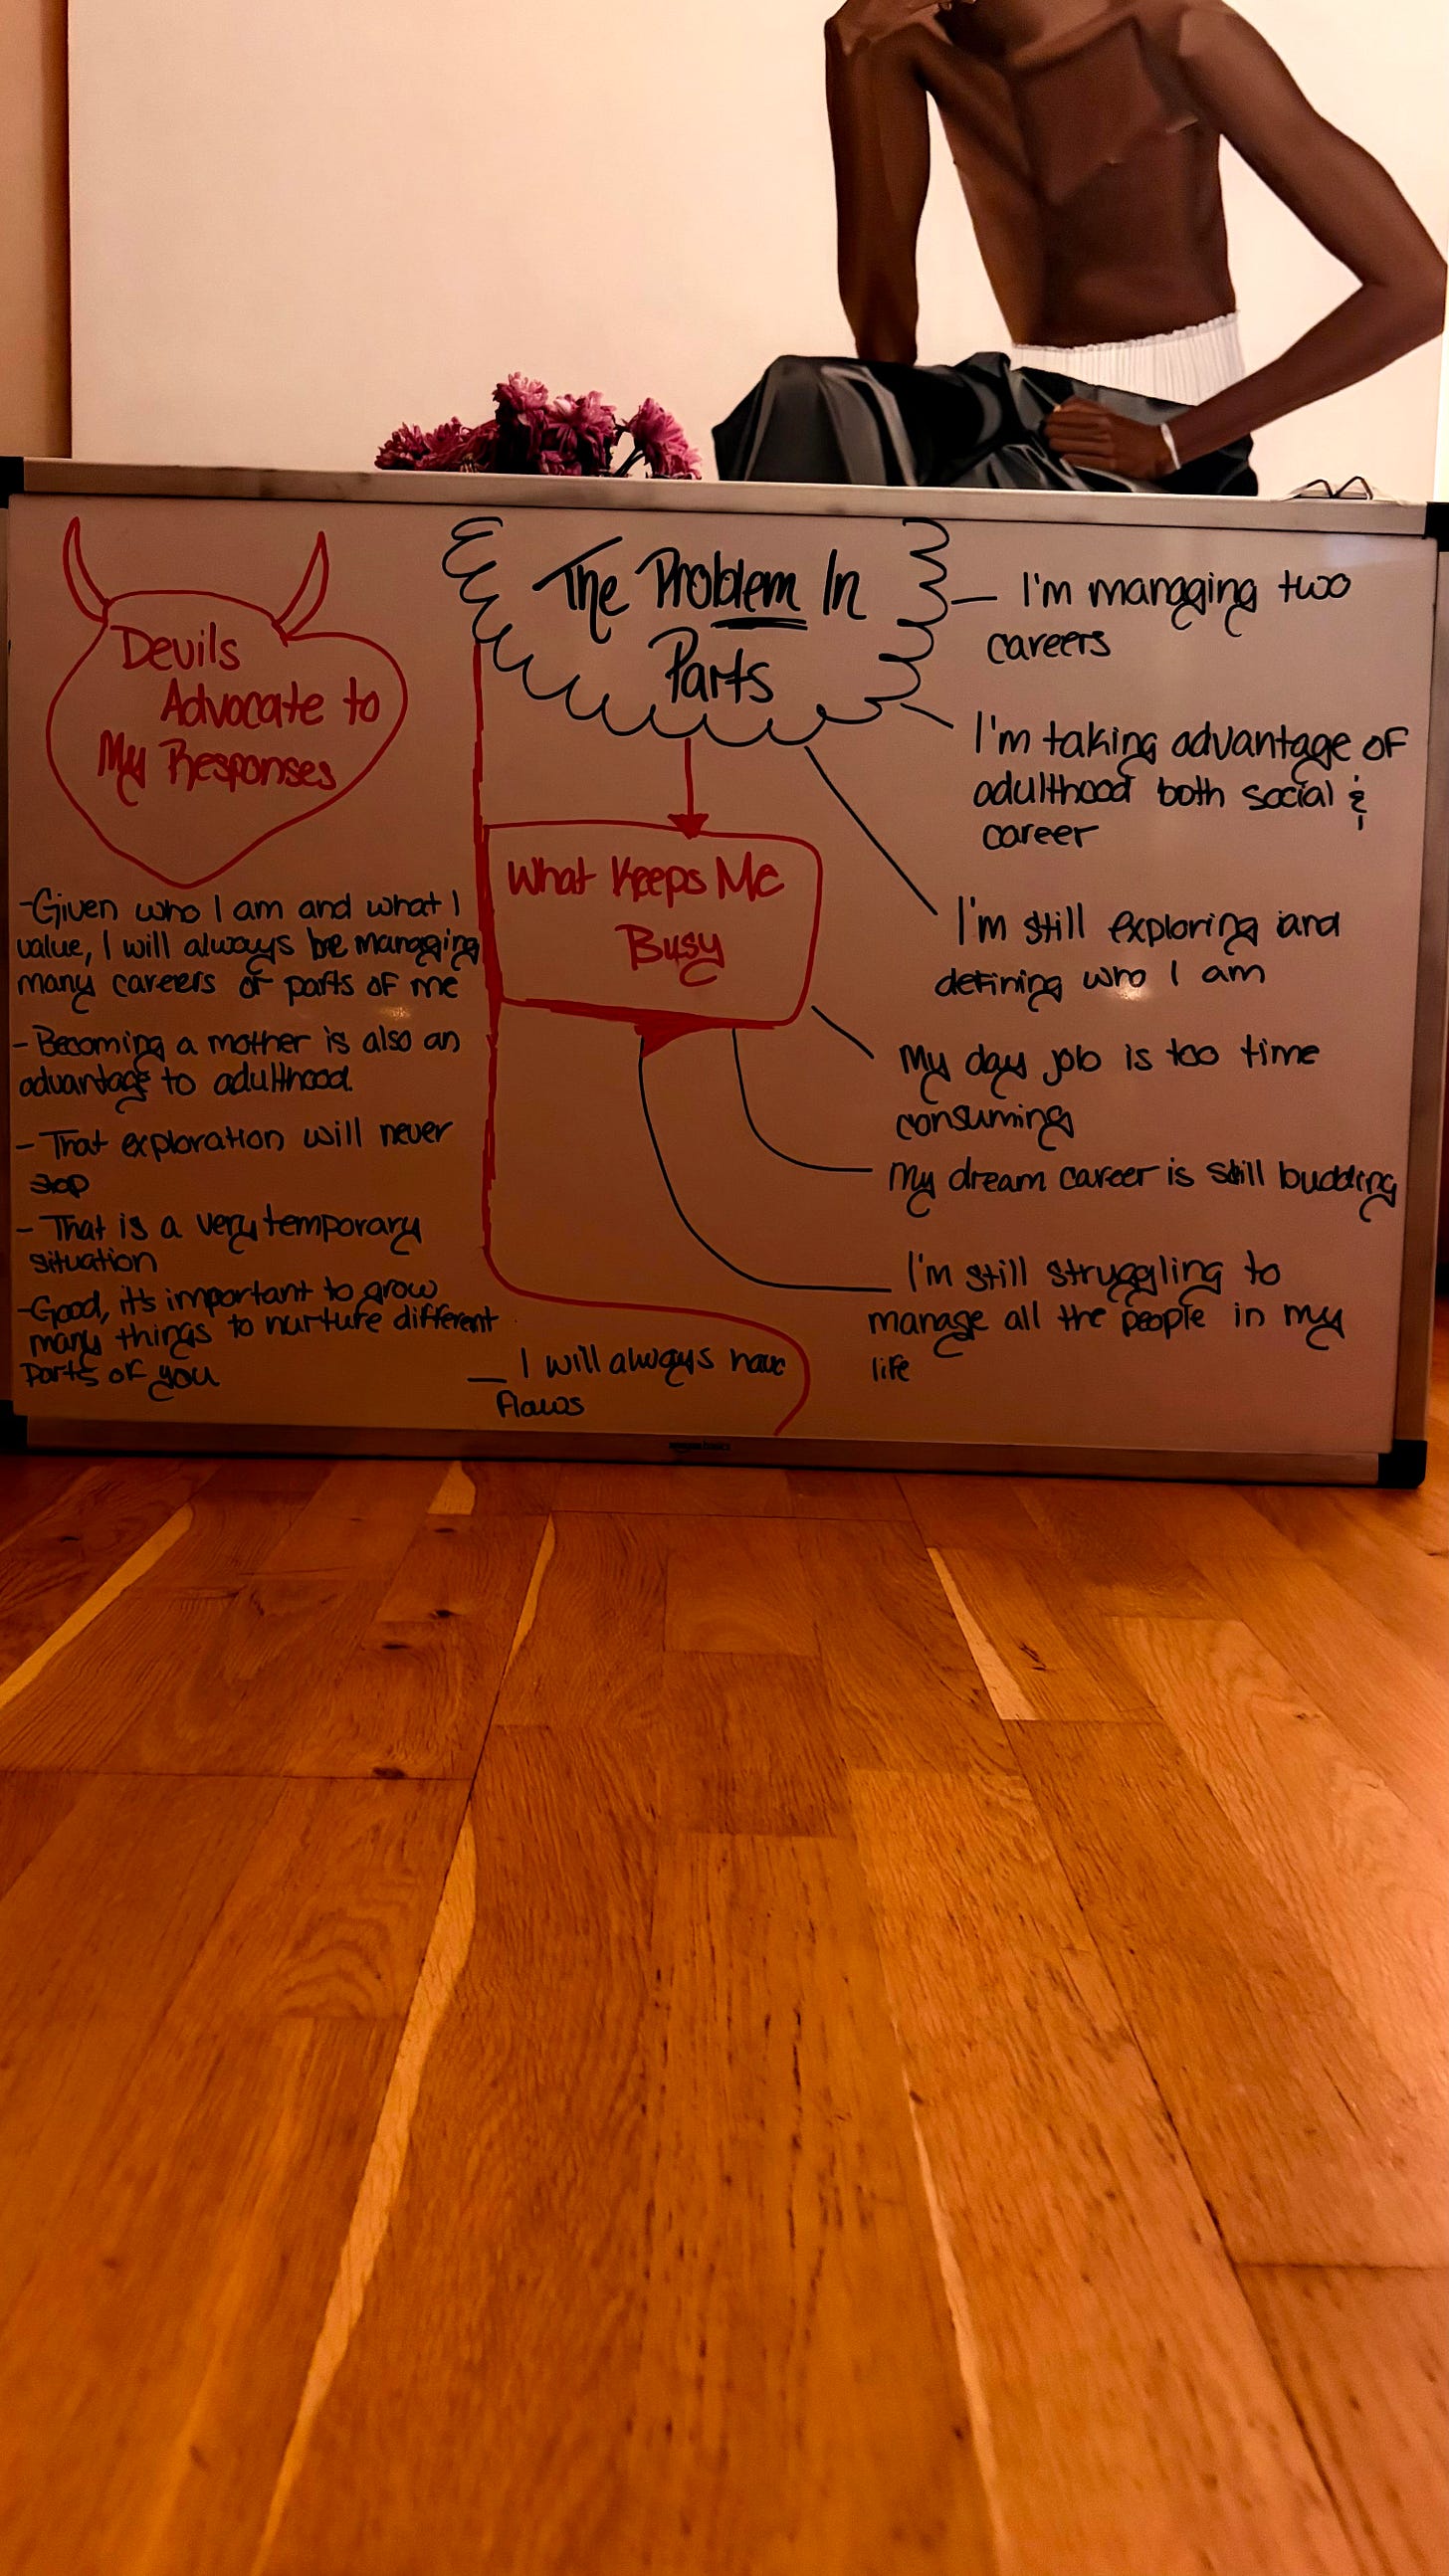 Devils
Advocate to
My Responses
-Given who I am and what I
value, I will always be managing
many careers or parts of me
- Becoming a mother is also an
advantage to adulthood.
- That exploration will never
stop
- That is a very temporary
situation
-Good, it's important to grow
many things to nurture different
parts of you
I will always have
flaws
The Problem In
Parts
What Keeps Me
Busy
I'm managing two
careers
I'm taking advantage of
adulthood both social &
career
I'm still exploring and
defining who I am
My day job is too time
consuming
My dream career is still budding
I'm still struggling to
manage all the people in my
life